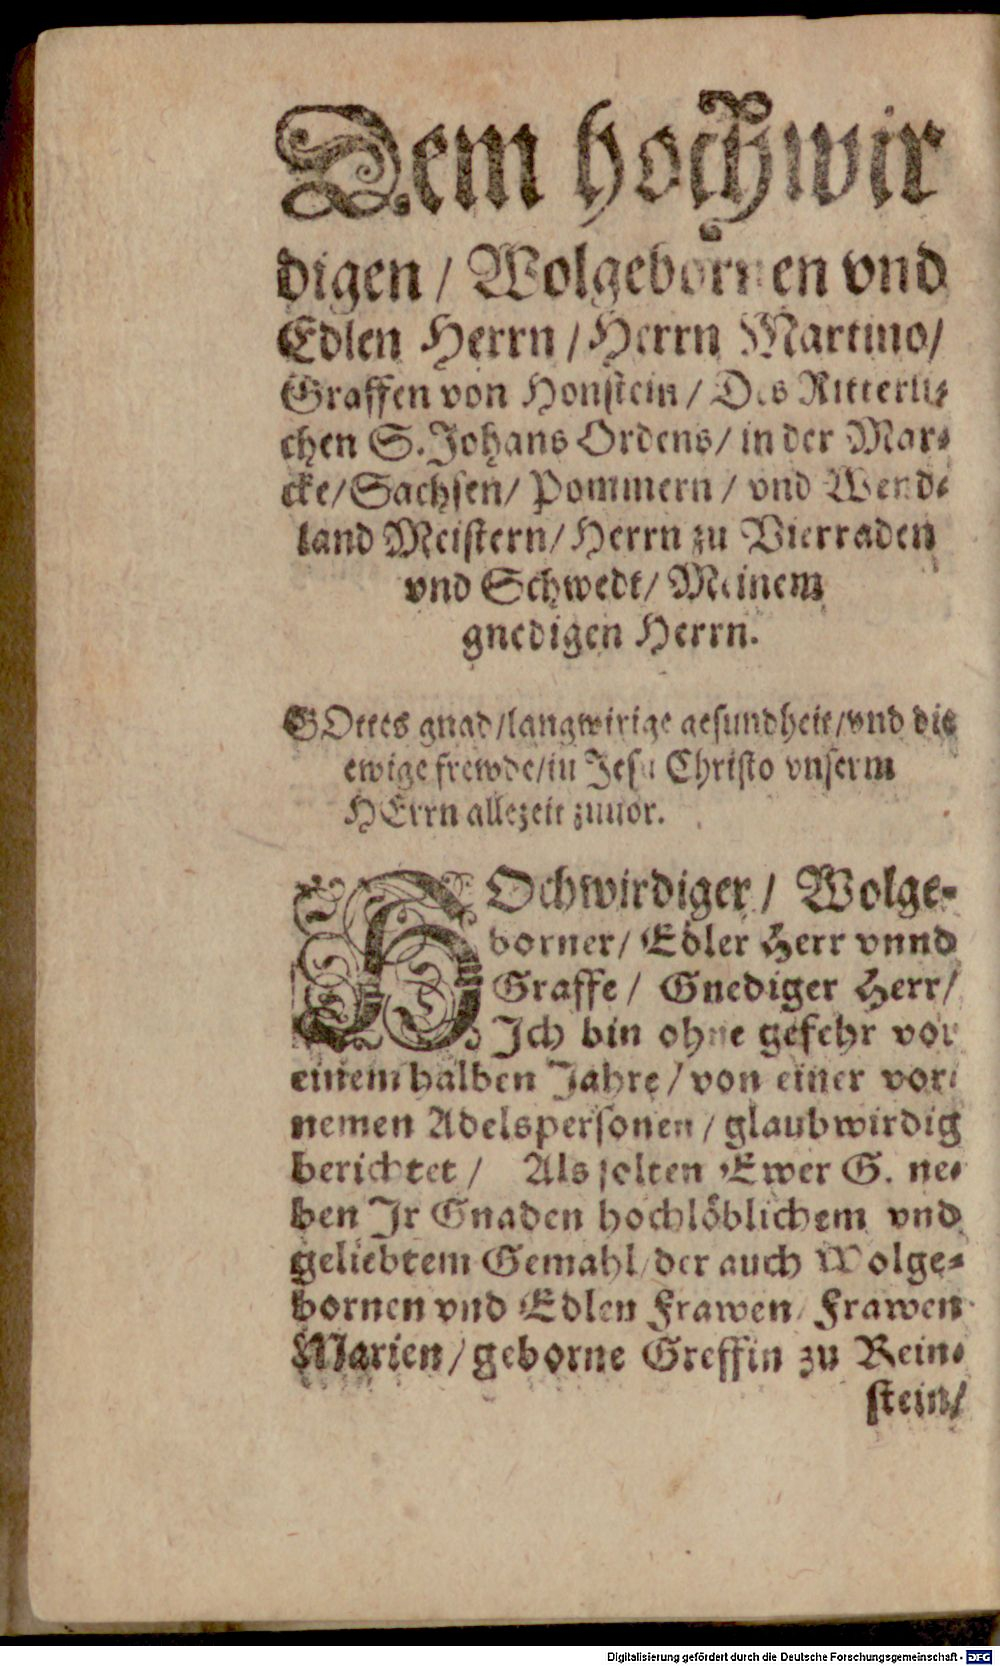 Dem hochwir
digen / Wolgebornen vnd
Edlen Herrn / Herrn Martino /
Graffen von Honstein / Des Ritterli⸗
chen S. Johans Ordens / in der Mar⸗
cke / Sachsen / Pommern / vnd Wend⸗
land Meistern / Herrn zu Vierraden
vnd Schwedt / Meinem
gnedigen Herrn.
GOttes gnad / langwirige gesundheit / vnd die
ewige frewde / in Jesu Christo vnserm
HErrn allezeit zuuor.
HOchwirdiger / Wolge⸗
borner / Edler Herr vnnd
Graffe / Gnediger Herr /
Ich bin ohne gefehr vor
einem halben Jahre / von einer vor⸗
nemen Adelspersonen / glaubwirdig
berichtet / Als solten Ewer G. ne⸗
ben Ir Gnaden hochlöblichem vnd
geliebtem Gemahl / der auch Wolge⸗
bornen vnd Edlen Frawen / Frawen
Marien / geborne Greffin zu Rein⸗
stein /
Digitalisierung gefördert durch die Deutsche Forschungsgemeinschaft - DFG